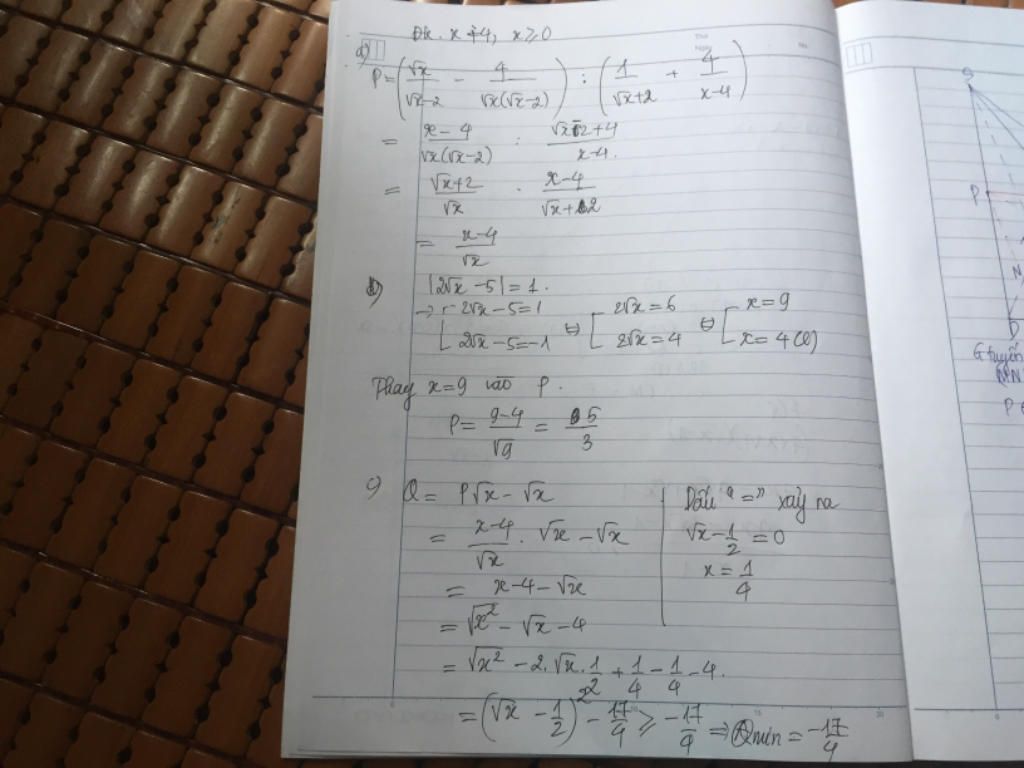 Đk. x ≠ 4, x ≥ 0
a) P = (√x/(√x-2) - 4/(√x(√x-2))) : (1/(√x+2) + 4/(x-4))
= (x-4)/(√x(√x-2)) : (√x-2+4)/(x-4).
= (√x+2)/√x . (x-4)/(√x+2)
= (x-4)/√x
b) |2√x - 5| = 1.
→ [ 2√x-5=1 ⇔ [ 2√x = 6 ⇔ [ x = 9
2√x-5=-1 2√x = 4 x = 4 (l)
Thay x=9 vào P.
P = (9-4)/√9 = 5/3
c) Q = P√x - √x
= (x-4)/√x . √x - √x
= x-4-√x
= √x² - √x - 4
= √x² - 2.√x.1/2 + 1/4 - 1/4 - 4.
= (√x - 1/2)² - 17/4 ≥ -17/4 ⇒ Qmin = -17/4
Dấu "=" xảy ra
√x - 1/2 = 0
x = 1/4
S
P
N
D
G
P